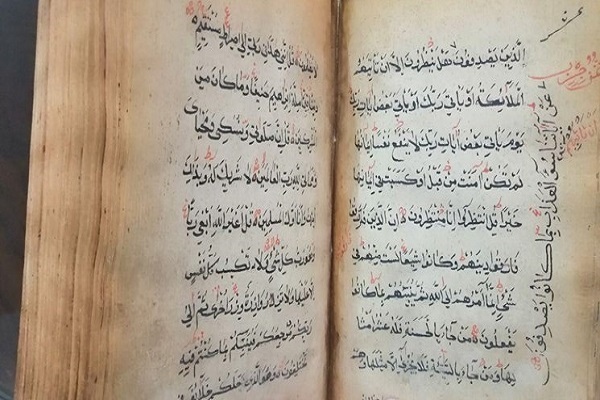 الَّذِينَ يَصْدِفُونَ هَلْ يَنْظُرُونَ إِلَّا أَنْ تَأْتِيَهُمُ
الْمَلَائِكَةُ أَوْ يَأْتِيَ رَبُّكَ أَوْ يَأْتِيَ بَعْضُ آيَاتِ رَبِّكَ
يَوْمَ يَأْتِي بَعْضُ آيَاتِ رَبِّكَ لَا يَنْفَعُ نَفْسًا إِيمَانُهَا
لَمْ تَكُنْ آمَنَتْ مِنْ قَبْلُ أَوْ كَسَبَتْ فِي إِيمَانِهَا
خَيْرًا قُلِ انْتَظِرُوا إِنَّا مُنْتَظِرُونَ إِنَّ الَّذِينَ
فَرَّقُوا دِينَهُمْ وَكَانُوا شِيَعًا لَسْتَ مِنْهُمْ فِي
شَيْءٍ إِنَّمَا أَمْرُهُمْ إِلَى اللَّهِ ثُمَّ يُنَبِّئُهُمْ بِمَا كَانُوا
يَفْعَلُونَ مَنْ جَاءَ بِالْحَسَنَةِ فَلَهُ عَشْرُ أَمْثَا
لِهَا وَمَنْ جَاءَ بِالسَّيِّئَةِ فَلَا يُجْزَى إِلَّا مِثْلَهَا وَهُمْ
عَنْ آيَاتِنَا سُوءَ الْعَذَابِ بِمَا كَانُوا يَصْدِفُونَ
لَا يُظْلَمُونَ قُلْ إِنَّنِي هَدَانِي رَبِّي إِلَى صِرَاطٍ مُسْتَقِيمٍ
دِينًا قِيَمًا مِلَّةَ إِبْرَاهِيمَ حَنِيفًا وَمَا كَانَ مِنَ
الْمُشْرِكِينَ قُلْ إِنَّ صَلَاتِي وَنُسُكِي وَمَحْيَايَ
وَمَمَاتِي لِلَّهِ رَبِّ الْعَالَمِينَ لَا شَرِيكَ لَهُ وَبِذَلِكَ
أُمِرْتُ وَأَنَا أَوَّلُ الْمُسْلِمِينَ قُلْ أَغَيْرَ اللَّهِ أَبْغِي رَبًّا
وَهُوَ رَبُّ كُلِّ شَيْءٍ وَلَا تَكْسِبُ كُلُّ نَفْسٍ
إِلَّا عَلَيْهَا وَلَا تَزِرُ وَازِرَةٌ وِزْرَ أُخْرَى ثُمَّ إِلَى
رَبِّكُمْ مَرْجِعُكُمْ فَيُنَبِّئُكُمْ بِمَا كُنْتُمْ فِيهِ
تَخْتَلِفُونَ وَهُوَ الَّذِي جَعَلَكُمْ خَلَائِفَ